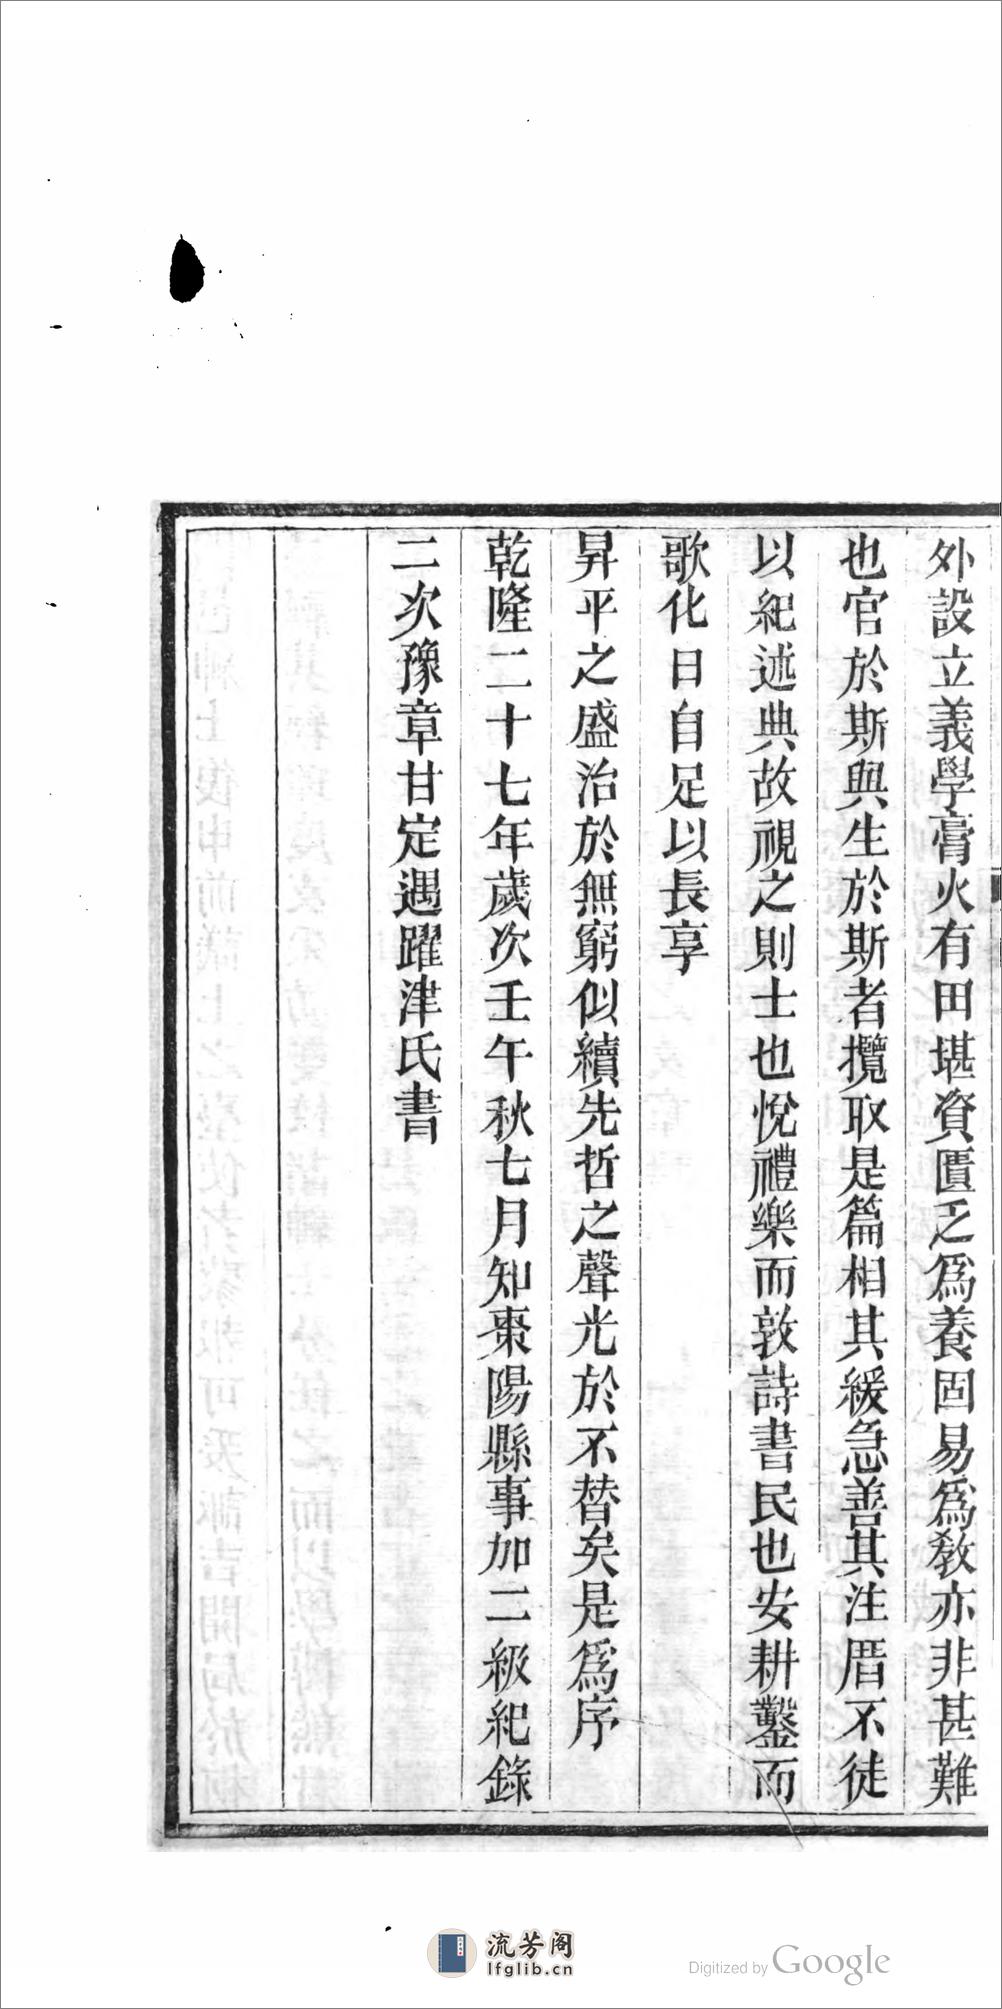 外設立義學膏火有田堪資匱乏爲養固易爲敎亦非甚難
也官於斯與生於斯者攬取是篇相其緩急善其注厝不徒
以紀述典故視之則士也悅禮樂而敦詩書民也安耕鑿而
歌化日自足以長享
昇平之盛治於無窮似續先哲之聲光於不替矣是爲序
乾隆二十七年歲次壬午秋七月知棗陽縣事加二級紀錄
二次豫章甘定遇躍津氏書
流芳阁
lfglib.cn
Digitized by Google